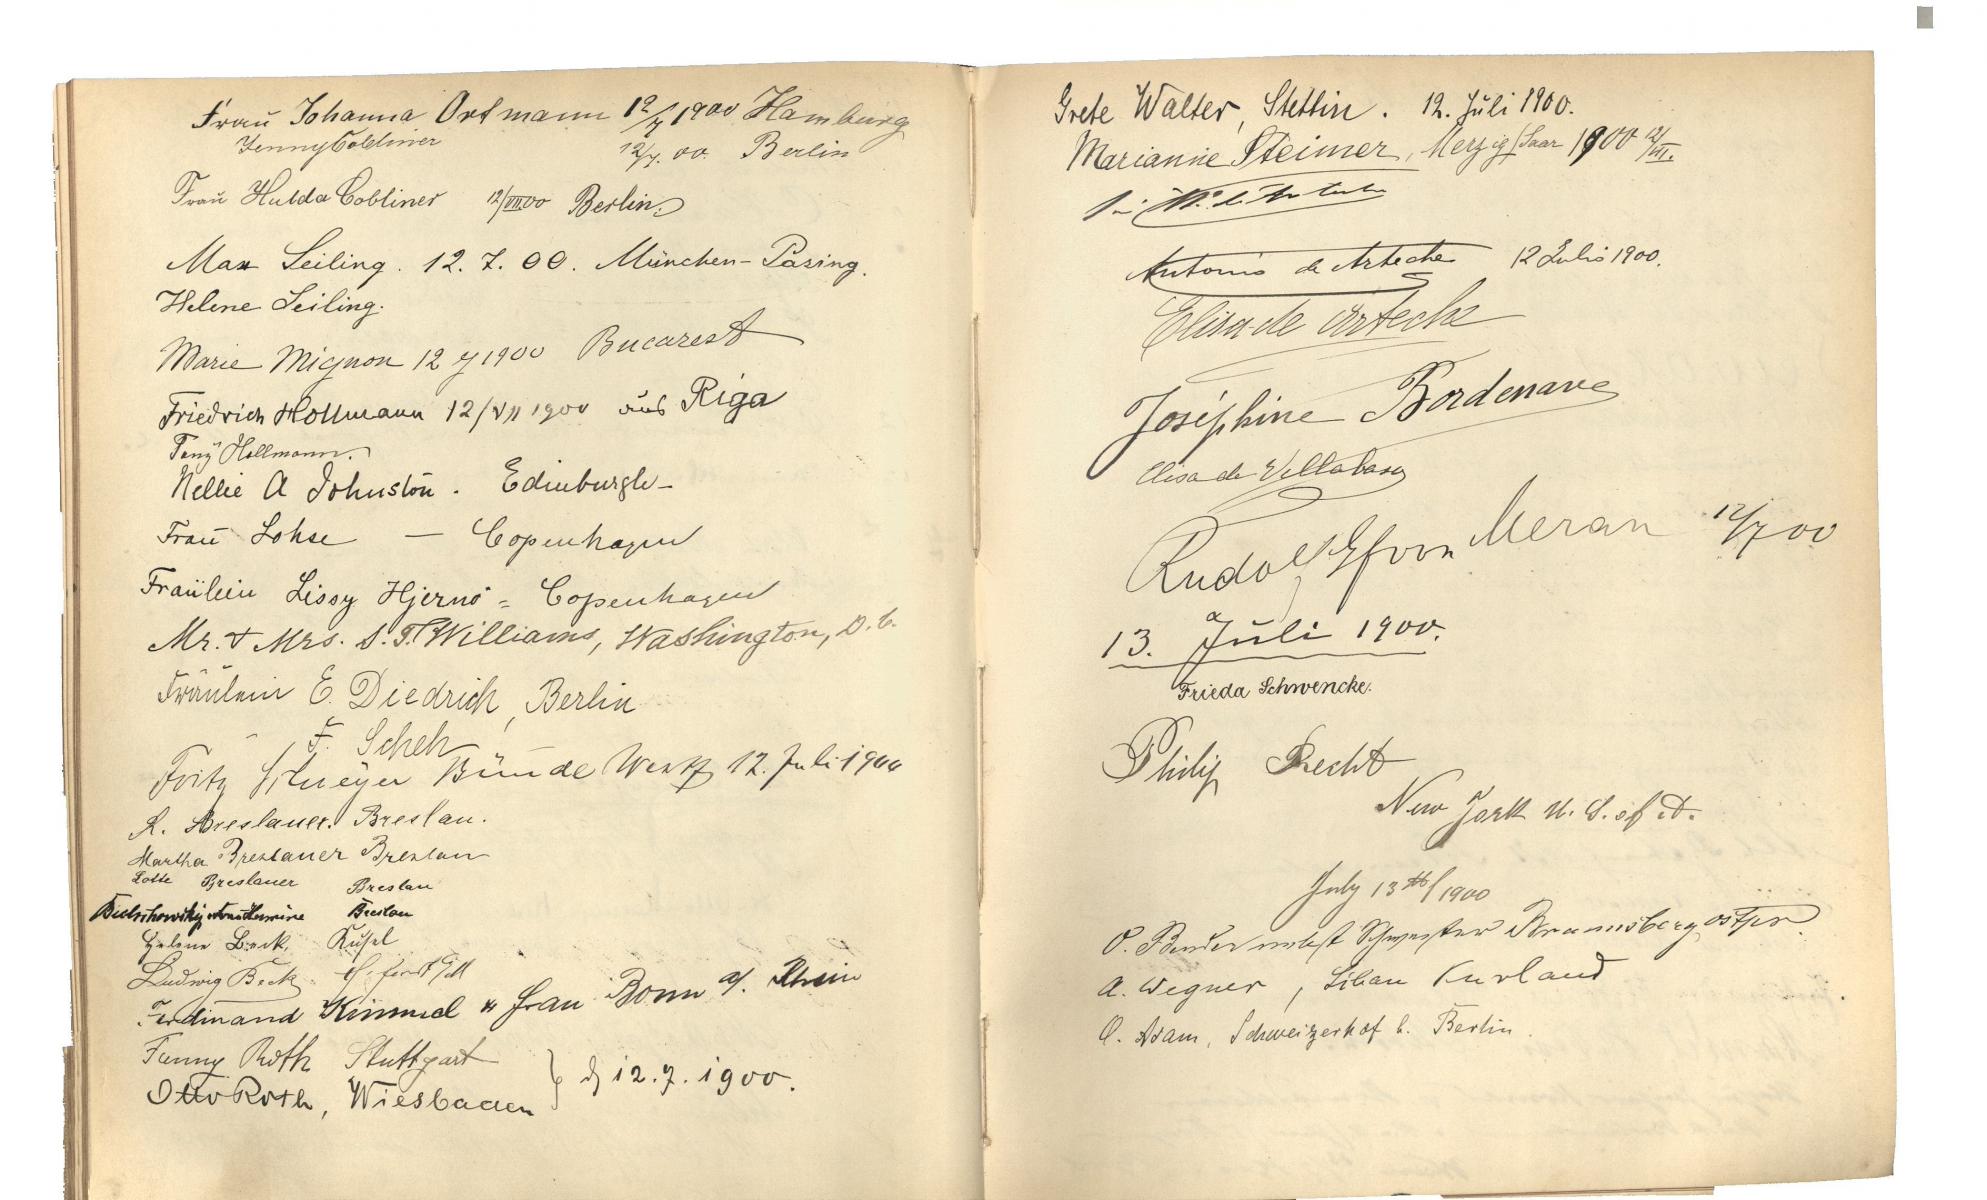 Frau Johanna Ortmann 12/7 1900 Hamburg
Jenny Cobliner 12/7. 00. Berlin
Frau Hulda Cobliner 12/VII.00 Berlin.
Max Seiling. 12. 7. 00. München-Pasing.
Helene Seiling.
Marie Mignon 12 7 1900 Bucarest
Friedrich Hollmann 12/VII 1900 aus Riga
Hollmann.
Nellie A Johnston. Edinburgh-
Frau Lohse — Copenhagen
Fräulein Lissy Hjernö = Copenhagen
Mr. & Mrs. S. T. Williams, Washington, D. C.
Fräulein E. Diedrich, Berlin
F. Scheh
Fritz Bünde Westf 12. Juli 1900
R. Breslauer. Breslau.
Martha Breslauer Breslau
Lotte Breslauer Breslau
Hermine Breslau
Helene Beck, Kusel
Ludwig Beck
Ferdinand Kimmel u frau Bonn a/. Rhein
Fanny Roth Stuttgart
Otto Roth, Wiesbaden } d 12. 7. 1900.
Grete Walter, Stettin. 12. Juli 1900.
Marianne Steimer, Merzig/Saar 1900 12/VII.
Antonio de Arteche 12 Julio 1900.
Elisa de Arteche
Joséphine Bordenave
Elisa de
Rudolf Meran 12/7 00
13. Juli 1900.
Frieda Schwencke.
Philip Recht
New York U. S. of A.
July 13th/1900
O. nebst Schwester Braunsberg ostpr.
A. Wegner, Libau Kurland
O. Adam, Schweizerhof b. Berlin.